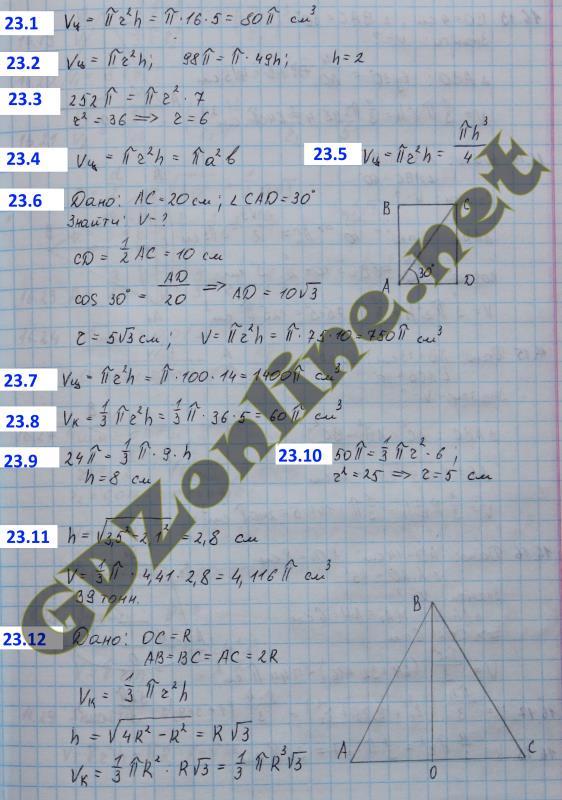 23.1 Vц = πr²h = π·16·5 = 80π см³
23.2 Vц = πr²h; 98π = π·49h; h = 2
23.3 252π = πr²·7
r² = 36 ⟹ r = 6
23.4 Vц = πr²h = πa²b
23.5 Vц = πr²h = πh³/4
23.6 Дано: AC = 20 см; ∠CAD = 30°
Знайти: V - ?
CD = 1/2 AC = 10 см
cos 30° = AD/20 ⟹ AD = 10√3
r = 5√3 см; V = πr²h = π·75·10 = 750π см³
B C
30°
A D
23.7 Vц = πr²h = π·100·14 = 1400π см³
23.8 Vк = 1/3 πr²h = 1/3 π·36·5 = 60π см³
23.9 24π = 1/3 π·9·h
h = 8 см
23.10 50π = 1/3 πr²·6;
r² = 25 ⟹ r = 5 см
23.11 h = √(3,5² - 2,1²) = 2,8 см
V = 1/3 π·4,41·2,8 = 4,116π см³
39 тонн.
23.12 Дано: OC = R
AB = BC = AC = 2R
Vк = 1/3 πr²h
h = √(4R² - R²) = R√3
Vк = 1/3 πR²·R√3 = 1/3 πR³√3
B
A O C
GDZonline.net